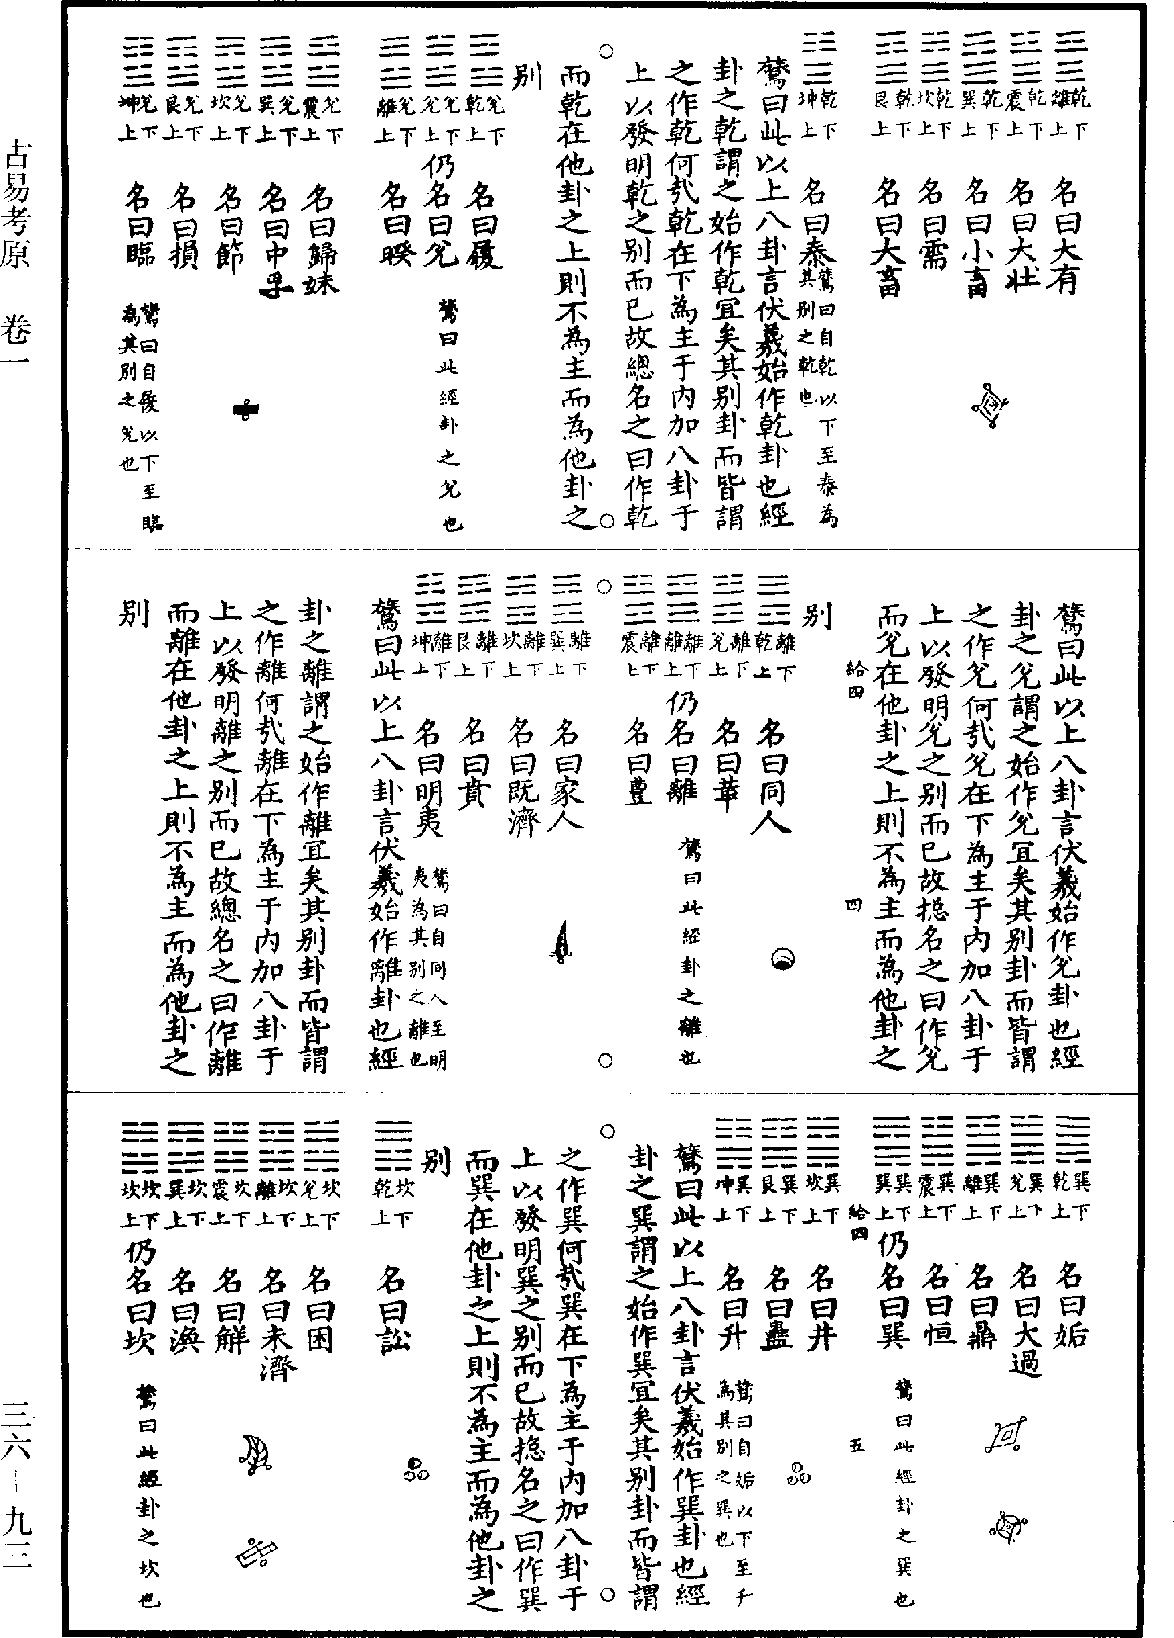 古易考原 卷一
三六——九三
䷍ 乾下離上 名曰大有
䷡ 乾下震上 名曰大壯
䷈ 乾下巽上 名曰小畜
䷄ 乾下坎上 名曰需
䷙ 乾下艮上 名曰大畜
䷊ 乾下坤上 名曰泰 鷟曰自乾以下至泰為其別之乾也
鷟曰此以上八卦言伏羲始作乾卦也經
卦之乾謂之始作乾宜矣其別卦而皆謂
之作乾何㢤乾在下為主于内加八卦于
上以發明乾之別而已故總名之曰作乾
而乾在他卦之上則不為主而為他卦之
別
䷉ 兊下乾上 名曰履
䷹ 兊下兊上 仍名曰兊 鷟曰此經卦之兊也
䷥ 兊下離上 名曰睽
䷵ 兊下震上 名曰歸妹
䷼ 兊下巽上 名曰中孚
䷻ 兊下坎上 名曰節
䷨ 兊下艮上 名曰損
䷒ 兊下坤上 名曰臨 鷟曰自履以下至臨為其別之兊也
鷟曰此以上八卦言伏羲始作兊卦也經
卦之兊謂之始作兊宜矣其別卦而皆謂
之作兊何㢤兊在下為主于内加八卦于
上以發明兊之別而已故捴名之曰作兊
給四 四
而兊在他卦之上則不為主而為他卦之
別
䷌ 離下乾上 名曰同人
䷰ 離下兊上 名曰革
䷝ 離下離上 仍名曰離 鷟曰此經卦之離也
䷶ 離下震上 名曰豊
䷤ 離下巽上 名曰家人
䷾ 離下坎上 名曰既濟
䷕ 離下艮上 名曰賁
䷣ 離下坤上 名曰明夷 鷟曰自同人至明夷為其別之離也
鷟曰此以上八卦言伏羲始作離卦也經
卦之離謂之始作離宜矣其別卦而皆謂
之作離何㢤離在下為主于内加八卦于
上以發明離之別而已故總名之曰作離
而離在他卦之上則不為主而為他卦之
別
䷫ 巽下乾上 名曰姤
䷛ 巽下兊上 名曰大過
䷱ 巽下離上 名曰鼎
䷟ 巽下震上 名曰恒
䷸ 巽下巽上 仍名曰巽 鷟曰此經卦之巽也
給四 五
䷯ 巽下坎上 名曰井
䷑ 巽下艮上 名曰蠱
䷭ 巽下坤上 名曰升 鷟曰自姤以下至升為其別之巽也
鷟曰此以上八卦言伏羲始作巽卦也經
卦之巽謂之始作巽宜矣其別卦而皆謂
之作巽何㢤巽在下為主于内加八卦于
上以發明巽之別而已故捴名之曰作巽
而巽在他卦之上則不為主而為他卦之
別
䷅ 坎下乾上 名曰訟
䷮ 坎下兊上 名曰困
䷿ 坎下離上 名曰未濟
䷧ 坎下震上 名曰觧
䷺ 坎下巽上 名曰渙
䷜ 坎下坎上 仍名曰坎 鷟曰此經卦之坎也